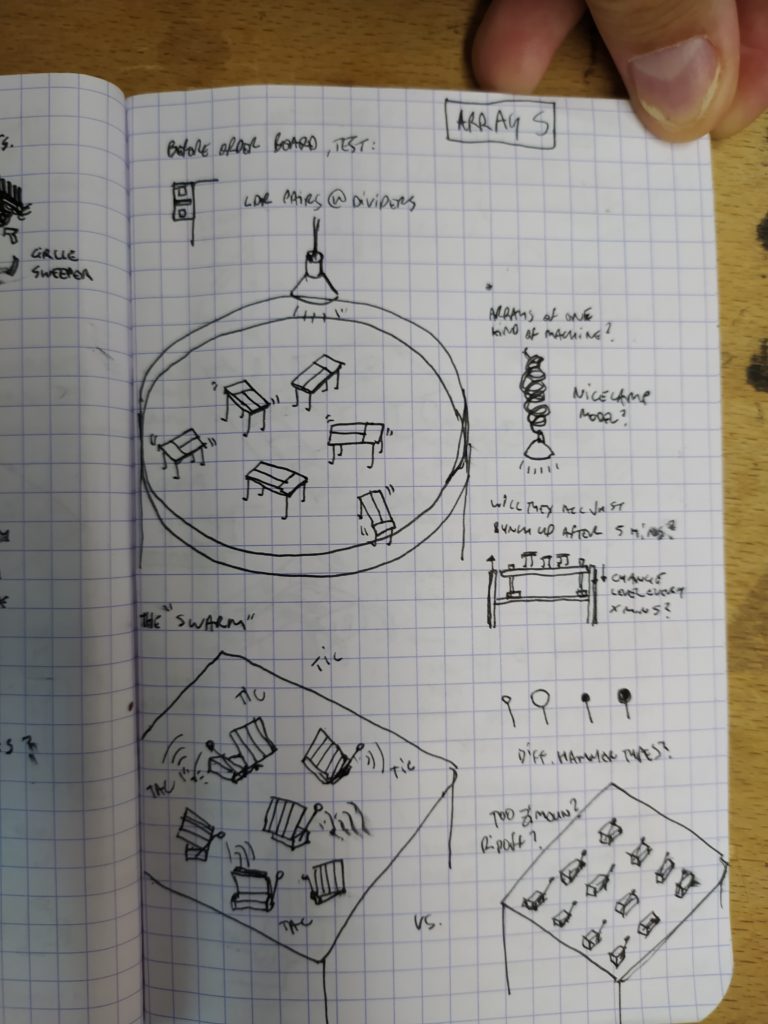 ARRAYS
BEFORE ORDER BOARD, TEST:
LDR PAIRS @ DIVIDERS
GRILLE
SWEEPER
ARRAYS OF ONE
KIND OF MACHINE?
NICE LAMP
MODEL?
WILL THEY ALL JUST
BUNCH UP AFTER 5 MINS?
CHANGE
LEVEL EVERY
X MINS?
THE "SWARM"
TIC
TIC
TAC
TIC
TAC
DIFF. HAMMER TYPES?
TOO ZIMOUN?
RIPOFF?
VS.